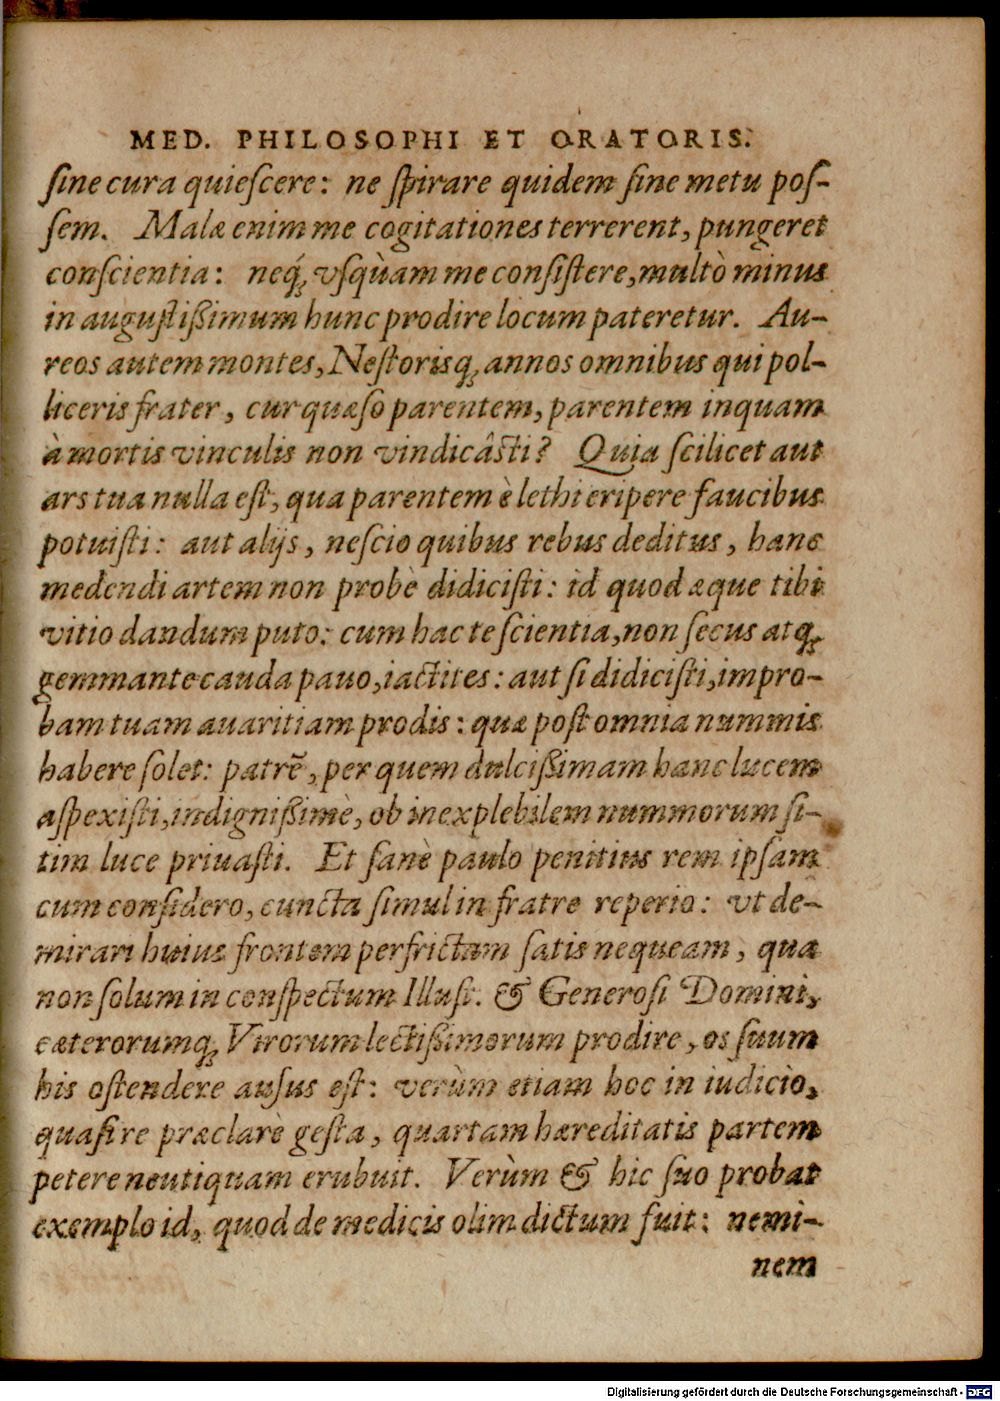 MED. PHILOSOPHI ET ORATORIS.
ſine cura quieſcere: ne ſpirare quidem ſine metu poſ-
ſem. Malæ enim me cogitationes terrerent, pungeret
conſcientia: neq́ꝫ vſquàm me conſiſtere, multò minus
in auguſtißimum hunc prodire locum pateretur. Au-
reos autem montes, Neſtorisqꝫ annos omnibus qui pol-
liceris frater, cur quæſo parentem, parentem inquam
à mortis vinculis non vindicâſti? Quia ſcilicet aut
ars tua nulla eſt, qua parentem è lethi eripere faucibus
potuiſti: aut alijs, neſcio quibus rebus deditus, hanc
medendi artem non probè didiciſti: id quod æque tibi
vitio dandum puto: cum hac te ſcientia, non ſecus atqꝫ
gemmante cauda pauo, iactites: aut ſi didiciſti, impro-
bam tuam auaritiam prodis: quæ poſt omnia nummis
habere ſolet: patrẽ, per quem dulcißimam hanc lucem
aſpexiſti, indignißimè, ob inexplebilem nummorum ſi-
tim luce priuaſti. Et ſanè paulo penitius rem ipſam
cum conſidero, cuncta ſimul in fratre reperio: vt de-
mirari huius frontem perfrictam ſatis nequeam, qua
non ſolum in conſpectum Illuſt. & Generoſi Domini,
cæterorumqꝫ Virorum lectißimorum prodire, os ſuum
his oſtendere auſus eſt: verùm etiam hoc in iudicio,
quaſi re præclarè geſta, quartam hæreditatis partem
petere neutiquam erubuit. Verùm & hic ſuo probat
exemplo id, quod de medicis olim dictum fuit: nemi-
nem
Digitalisierung gefördert durch die Deutsche Forschungsgemeinschaft - DFG